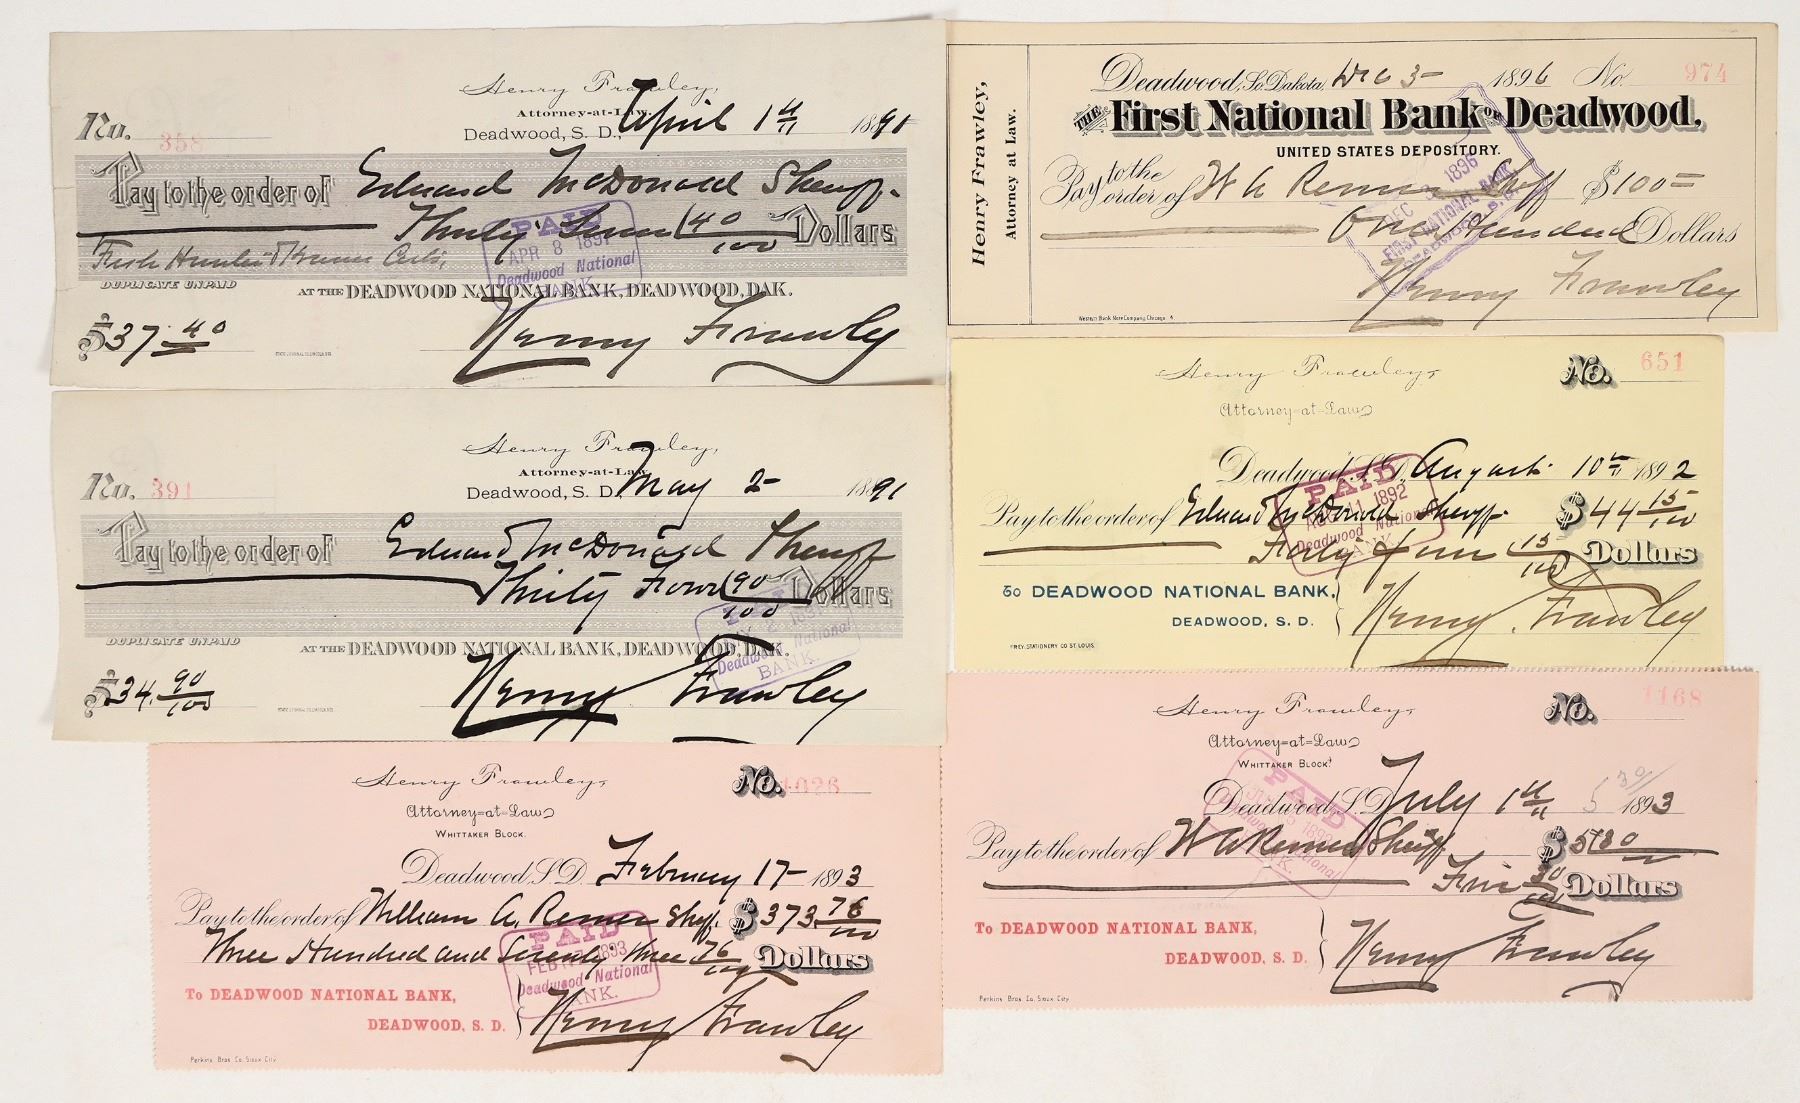 Henry Frawley,
Attorney-at-Law,
No. 358 Deadwood, S. D., April 1st 1891
Pay to the order of Edward McDonald Sheriff
Thirty Seven 40/100 Dollars
DUPLICATE UNPAID AT THE DEADWOOD NATIONAL BANK, DEADWOOD, DAK.
$37.40 Henry Frawley
PAID
APR 8 1891
Deadwood National
BANK.
Henry Frawley,
Attorney-at-Law,
No. 391 Deadwood, S. D. May 2 1891
Pay to the order of Edward McDonald Sheriff
Thirty Four 90/100 Dollars
DUPLICATE UNPAID AT THE DEADWOOD NATIONAL BANK, DEADWOOD, DAK.
$34.90/100 Henry Frawley
Deadwood National
BANK.
Henry Frawley,
Attorney-at-Law
WHITTAKER BLOCK.
No. 1026
Deadwood, S.D. February 17 1893
Pay to the order of William A. Remer Sheff. $373.76/100
Three Hundred and Seventy three 76/100 Dollars
To DEADWOOD NATIONAL BANK,
DEADWOOD, S. D. Henry Frawley
Perkins Bros Co Sioux City
PAID
FEB 17 1893
Deadwood National
BANK.
Henry Frawley,
Attorney at Law.
Deadwood, So. Dakota, Dec 3 1896 No. 974
THE First National Bank OF Deadwood,
UNITED STATES DEPOSITORY.
Pay to the order of W A Remer Sheff $100=
One Hundred Dollars
Henry Frawley
Western Bank Note Company, Chicago
DEC 3 1896
FIRST NATIONAL BANK
DEADWOOD, S. D.
Henry Frawley,
Attorney-at-Law
No. 651
Deadwood, S.D. August 10th 1892
Pay to the order of Edward McDonald Sheriff $44 15/100
Forty Four 15/100 Dollars
To DEADWOOD NATIONAL BANK,
DEADWOOD, S. D. Henry Frawley
FREY. STATIONERY CO ST. LOUIS.
PAID
AUG 11 1892
Deadwood National
BANK
Henry Frawley,
Attorney-at-Law
WHITTAKER BLOCK.
No. 1168
Deadwood, S.D. July 1st 1893
5 30/
Pay to the order of W A Remer Sheriff $5 30
Five 30/100 Dollars
To DEADWOOD NATIONAL BANK,
DEADWOOD, S. D. Henry Frawley
Perkins Bros. Co. Sioux City
PAID
Deadwood National